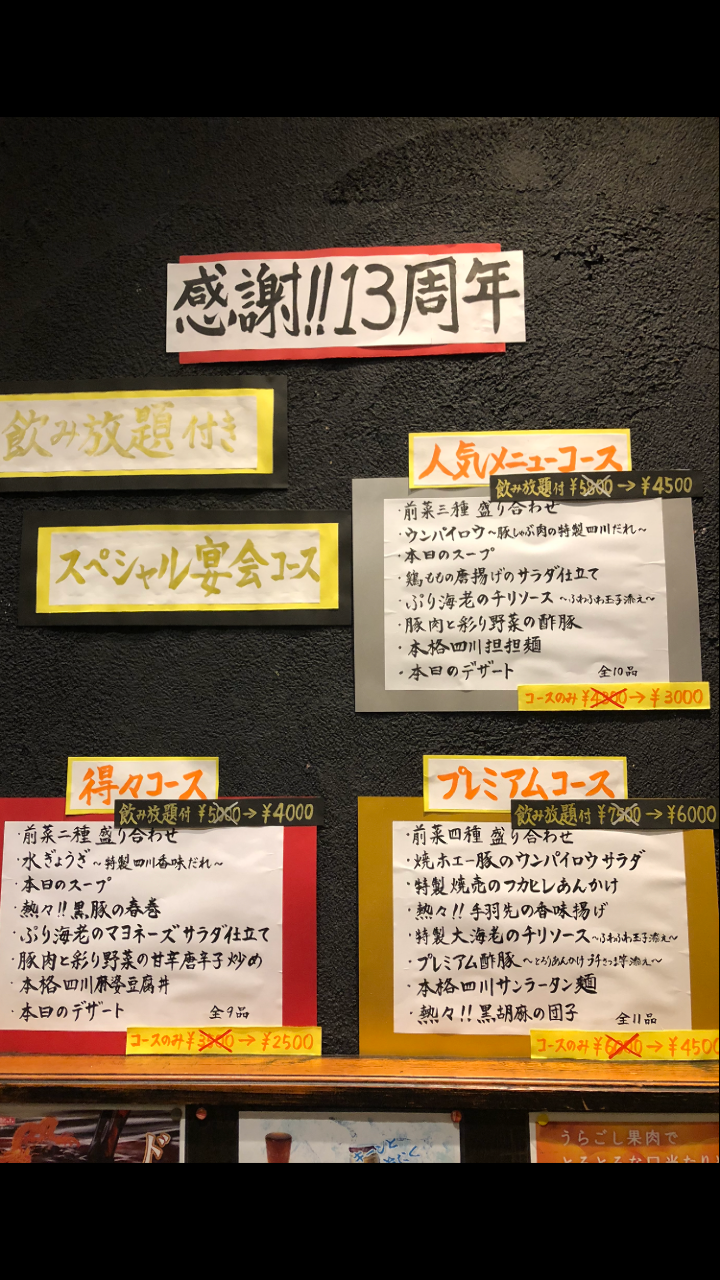 感謝!!13周年
飲み放題付き
スペシャル宴会コース
人気メニューコース
飲み放題付 ¥5800→¥4500
・前菜三種 盛り合わせ
・ウンパイロウ～豚しゃぶ肉の特製四川だれ～
・本日のスープ
・鶏ももの唐揚げのサラダ仕立て
・ぷり海老のチリソース ～ふわふわ玉子添え～
・豚肉と彩り野菜の酢豚
・本格四川担担麺
・本日のデザート 全10品
コースのみ ¥4300→¥3000
得々コース
飲み放題付 ¥5000→¥4000
・前菜二種 盛り合わせ
・水ぎょうざ～特製四川香味だれ～
・本日のスープ
・熱々!!黒豚の春巻
・ぷり海老のマヨネーズサラダ仕立て
・豚肉と彩り野菜の甘辛唐辛子炒め
・本格四川麻婆豆腐丼
・本日のデザート 全9品
コースのみ ¥3500→¥2500
プレミアムコース
飲み放題付 ¥7500→¥6000
・前菜四種 盛り合わせ
・焼ホエー豚のウンパイロウサラダ
・特製焼売のフカヒレあんかけ
・熱々!!手羽先の香味揚げ
・特製大海老のチリソース～ふわふわ玉子添え～
・プレミアム酢豚～とろりあんかけプチさつま芋添え～
・本格四川サンラータン麺
・熱々!!黒胡麻の団子 全11品
コースのみ ¥6000→¥4500
ド
うらごし果肉で
とろとろな口当たり